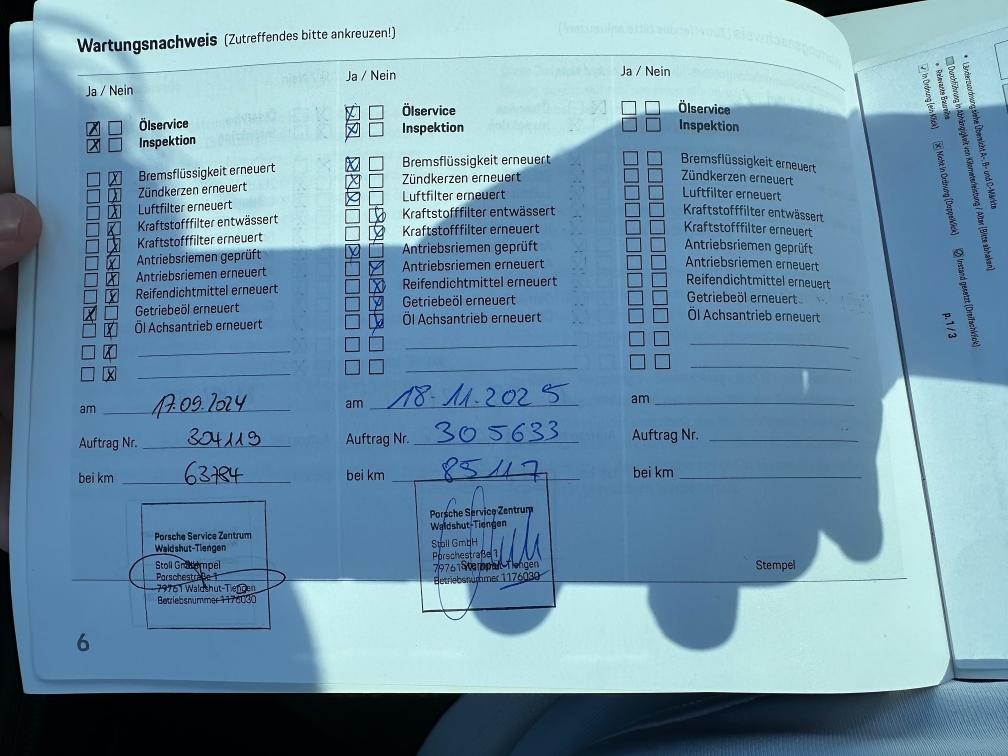 Wartungsnachweis (Zutreffendes bitte ankreuzen!)
Ja / Nein
Ölservice
Inspektion
Bremsflüssigkeit erneuert
Zündkerzen erneuert
Luftfilter erneuert
Kraftstofffilter entwässert
Kraftstofffilter erneuert
Antriebsriemen geprüft
Antriebsriemen erneuert
Reifendichtmittel erneuert
Getriebeöl erneuert
Öl Achsantrieb erneuert
am 17.09.2024
Auftrag Nr. 304119
bei km 63784
Porsche Service Zentrum
Waldshut-Tiengen
Stoll GmbH
Stempel
Porschestraße 1
79761 Waldshut-Tiengen
Betriebsnummer 1176030
Ja / Nein
Ölservice
Inspektion
Bremsflüssigkeit erneuert
Zündkerzen erneuert
Luftfilter erneuert
Kraftstofffilter entwässert
Kraftstofffilter erneuert
Antriebsriemen geprüft
Antriebsriemen erneuert
Reifendichtmittel erneuert
Getriebeöl erneuert
Öl Achsantrieb erneuert
am 18.11.2025
Auftrag Nr. 305633
bei km 85117
Porsche Service Zentrum
Waldshut-Tiengen
Stoll GmbH
Porschestraße 1
Stempel
79761 Waldshut-Tiengen
Betriebsnummer 1176030
Ja / Nein
Ölservice
Inspektion
Bremsflüssigkeit erneuert
Zündkerzen erneuert
Luftfilter erneuert
Kraftstofffilter entwässert
Kraftstofffilter erneuert
Antriebsriemen geprüft
Antriebsriemen erneuert
Reifendichtmittel erneuert
Getriebeöl erneuert
Öl Achsantrieb erneuert
am
Auftrag Nr.
bei km
Stempel
6
* Länderzuordnung siehe Übersicht A-, B- und C-Märkte
Durchführung in Abhängigkeit von Kilometerleistung / Alter (Bitte abhaken)
* Relevante Baureihe
In Ordnung (ein Klick)
Nicht in Ordnung (Doppelklick)
Instand gesetzt (Dreifachklick)
p. 1 / 3